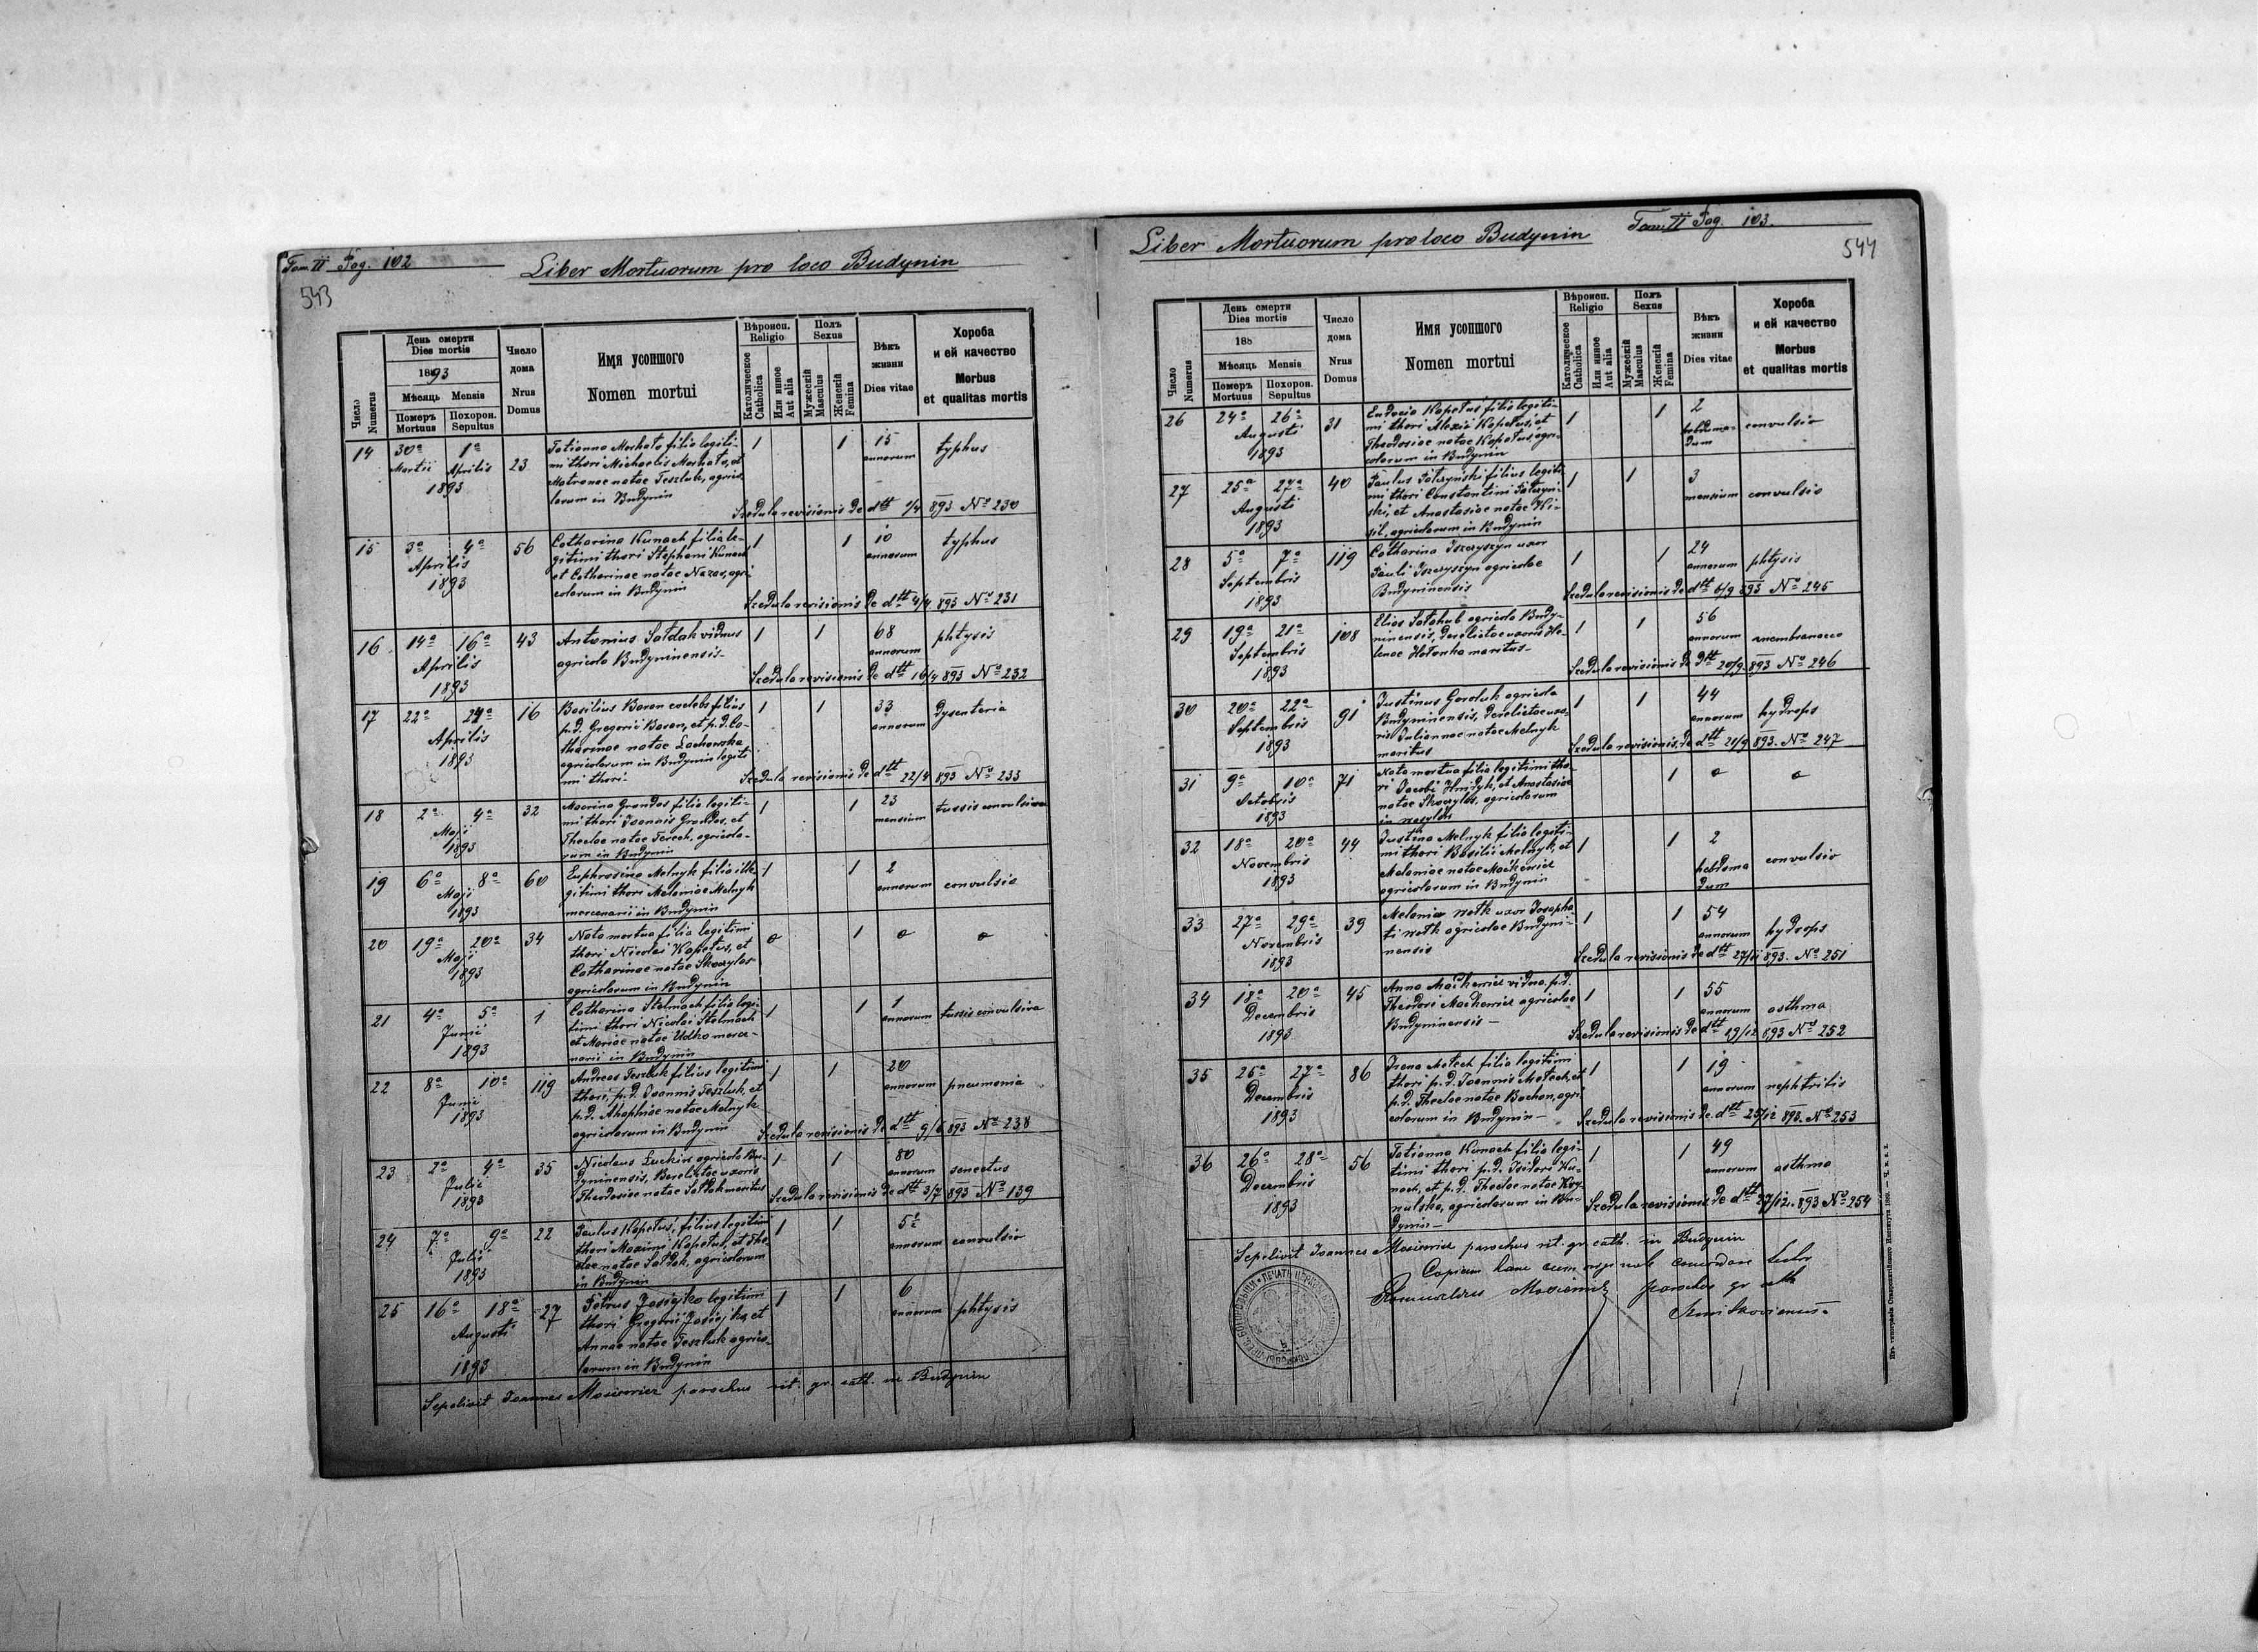 Tom. II Pag. 102
Liber Mortuorum pro loco Budynin
543
Число
Numerus
День смерти
Dies mortis
1893
Мѣсяць Mensis
Померъ
Mortuus
Похорон.
Sepultus
Число
дома
Nrus
Domus
Имя усопшого
Nomen mortui
Вѣроисп.
Religio
Католическое
Catholica
Или инное
Aut alia
Полъ
Sexus
Мужескій
Masculus
Женскій
Femina
Вѣкъ
жизни
Dies vitae
Хороба
и ей качество
Morbus
et qualitas mortis
14 30a Martii 1a Aprilis 1893 23
Tatianna filia legiti-
mi thori Michaelis et
Matronae natae Teszluk, agrico-
larum in Budynin
1 1 15 annorum typhus
Szedula revisionis de dtt 1/4 893 No 230
15 3a 4a Aprilis 1893 56
Catharina Kunach filia le-
gitimi thori Stephani Kunach
et Catharinae natae Nazar, agri-
colarum in Budynin
1 1 10 annorum typhus
Szedula revisionis de dtt 4/4 893 No 231
16 14a 16a Aprilis 1893 43
Antonius Sałdak viduus
agricola Budyninensis
1 1 68 annorum phtysis
Szedula revisionis de dtt 16/4 893 No 232
17 22a 24a Aprilis 1893 16
Basilius Baran coelebs filius
p.d. Gregorii Baran, et p.d. Ca-
tharinae natae Lachowska
agricolarum in Budynin legiti
mi thori
1 1 33 annorum dysenteria
Szedula revisionis de dtt 22/4 893 No 233
18 2a 4a Maji 1893 32
Macrina Grondas filia legiti-
mi thori Joannis Grondas, et
Theclae natae Terech, agricola-
rum in Budynin
1 1 23 mensium tussis convulsiva
19 6a 8a Maji 1893 60
Euphrosina Melnyk filia ille
gitimi thori Melaniae Melnyk
mercenarii in Budynin
1 1 2 annorum convulsio
20 19a 20a Maji 1893 34
Nata mortua filia legitimi
thori Nicolai Kapetus, et
Catharinae natae Skoczylas
agricolarum in Budynin
o 1 o o
21 4a 5a Junii 1893 1
Catharina Stelmach filia legi-
timi thori Nicolai Stelmach
et Mariae natae Udko merce-
narii in Budynin
1 1 1 annorum tussis convulsiva
22 8a 10a Junii 1893 119
Andreas Teszluk filius legitimi
thori, p.d. Joannis Teszluk, et
p.d. Ahaphiae natae Melnyk
agricolarum in Budynin
1 1 20 annorum pneumonia
Szedula revisionis de dtt 9/6 893 No 238
23 2a 4a Julii 1893 35
Nicolaus Luckiw agricola Bu-
dyninensis, Derelictae uxoris
Theodosiae natae Sałdak maritus
1 1 80 annorum senectus
Szedula revisionis de dtt 3/7 893 No 139
24 7a 9a Julii 1893 22
Paulus Kapetus, filius legitimi
thori Maximi Kapetus, et The-
clae natae Sałdak, agricolarum
in Budynin
1 1 5½ annorum convulsio
25 16a 18a Augusti 1893 27
Petrus Josiejko legitimi
thori Gregorii Josiejko, et
Annae natae Teszluk agrico-
larum in Budynin
1 1 6 annorum phtysis
Sepelivit Joannes Mosiewicz parochus rit. gr. cath. in Budynin
Liber Mortuorum pro loco Budynin
Tom. II Pag. 103.
544
Число
Numerus
День смерти
Dies mortis
188
Мѣсяць Mensis
Померъ
Mortuus
Похорон.
Sepultus
Число
дома
Nrus
Domus
Имя усопшого
Nomen mortui
Вѣроисп.
Religio
Католическое
Catholica
Или инное
Aut alia
Полъ
Sexus
Мужескій
Masculus
Женскій
Femina
Вѣкъ
жизни
Dies vitae
Хороба
и ей качество
Morbus
et qualitas mortis
26 24a 26a Augusti 1893 31
Eudocia Kapetus filia legiti-
mi thori Alexii Kapetus, et
Theodosiae natae Kapetus, agri-
colarum in Budynin
1 1 2 hebdoma-dum convulsio
27 25a 27a Augusti 1893 40
Paulus Pałczyński filius legiti
mi thori Constantini Pałczyń-
ski, et Anastasiae natae Ki-
sil, agricolarum in Budynin
1 1 3 mensium convulsio
28 5a 7a Septembris 1893 119
Catharina Iszczyszyn uxor
Pauli Iszczyszyn agricolae
Budyninensis
1 1 24 annorum phtysis
Szedula revisionis de dtt 6/9 893 No 245
29 19a 21a Septembris 1893 108
Elias Sałahub agricola Budy-
ninensis, derelictae uxoris He-
lenae maritus
1 1 56 annorum membranacea
Szedula revisionis de dtt 20/9 893 No 246
30 20a 22a Septembris 1893 91
Justinus Goroluk agricola
Budyninensis, derelictae uxo-
ris Juliannae natae Melnyk
maritus
1 1 44 annorum hydrops
Szedula revisionis de dtt 21/9 893. No 247
31 9a 10a Octobris 1893 71
Nata mortua filia legitimi tho-
ri Jacobi Hnidyk, et Anastasiae
natae Skoczylas, agricolarum
in
1 o o
32 18a 20a Novembris 1893 44
Justina Melnyk filia legiti-
mi thori Basilii Melnyk, et
Melaniae natae Mackewicz
agricolarum in Budynin
1 1 2 hebdoma dum convulsio
33 27a 29a Novembris 1893 39
Melania Wotk uxor Josapha
ti Wotk agricolae Budyni-
nensis
1 1 54 annorum hydrops
Szedula revisionis de dtt 27/11 893. No 251
34 18a 20a Decembris 1893 45
Anna Mackewicz vidua p.d.
Theodori Mackewicz agricolae
Budyninensis
1 1 55 annorum asthma
Szedula revisionis de dtt 19/12 893 No 252
35 25a 27a Decembris 1893 86
Irena Motech filia legitimi
thori p.d. Joannis Motech, et
p.d. Theclae natae Bochon, agri
colarum in Budynin
1 1 19 annorum nephtritis
Szedula revisionis de dtt 25/12 893. No 253
36 26a 28a Decembris 1893 56
Tatianna Kunach filia legi-
timi thori p.d. Isidori Ku-
nach, et p.d. Theclae natae Kry-
nulska, agricolarum in Bu-
dynin
1 1 49 annorum asthma
Szedula revisionis de dtt 27/12. 893 No 254
Sepelivit Joannes Mosiewicz parochus rit. gr. cath. in Budynin
Copiam hanc cum originali concordare testor
Romualdus Mosiewicz parochus gr cath